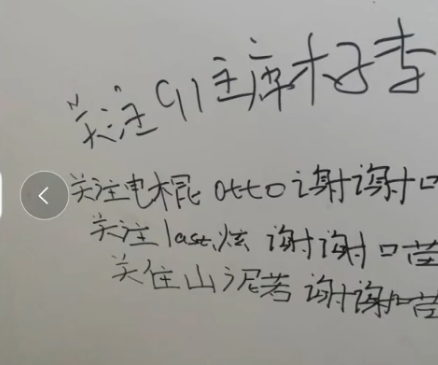 关注91主席杨孝
关注电棍otto谢谢口
关注last炫谢谢口苗
关住山泥若谢谢口苗